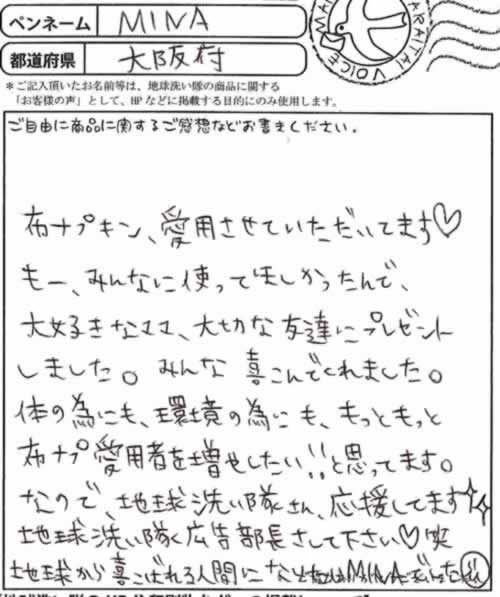 ペンネーム MINA
都道府県 大阪府
*ご記入頂いたお名前等は、地球洗い隊の商品に関する
「お客様の声」として、HPなどに掲載する目的にのみ使用します。
ご自由に商品に関するご感想などお書きください。
布ナプキン、愛用させていただいてます♡
もー、みんなに使ってほしかったんで、
大好きなママ、大切な友達にプレゼント
しました。みんな喜こんでくれました。
体の為にも、環境の為にも、もっともっと
布ナプ愛用者を増やしたい!!と思ってます。
なので、地球洗い隊さん、応援してます
地球洗い隊広告部長さして下さい♡笑
地球から喜こばれる人間に MINAでした